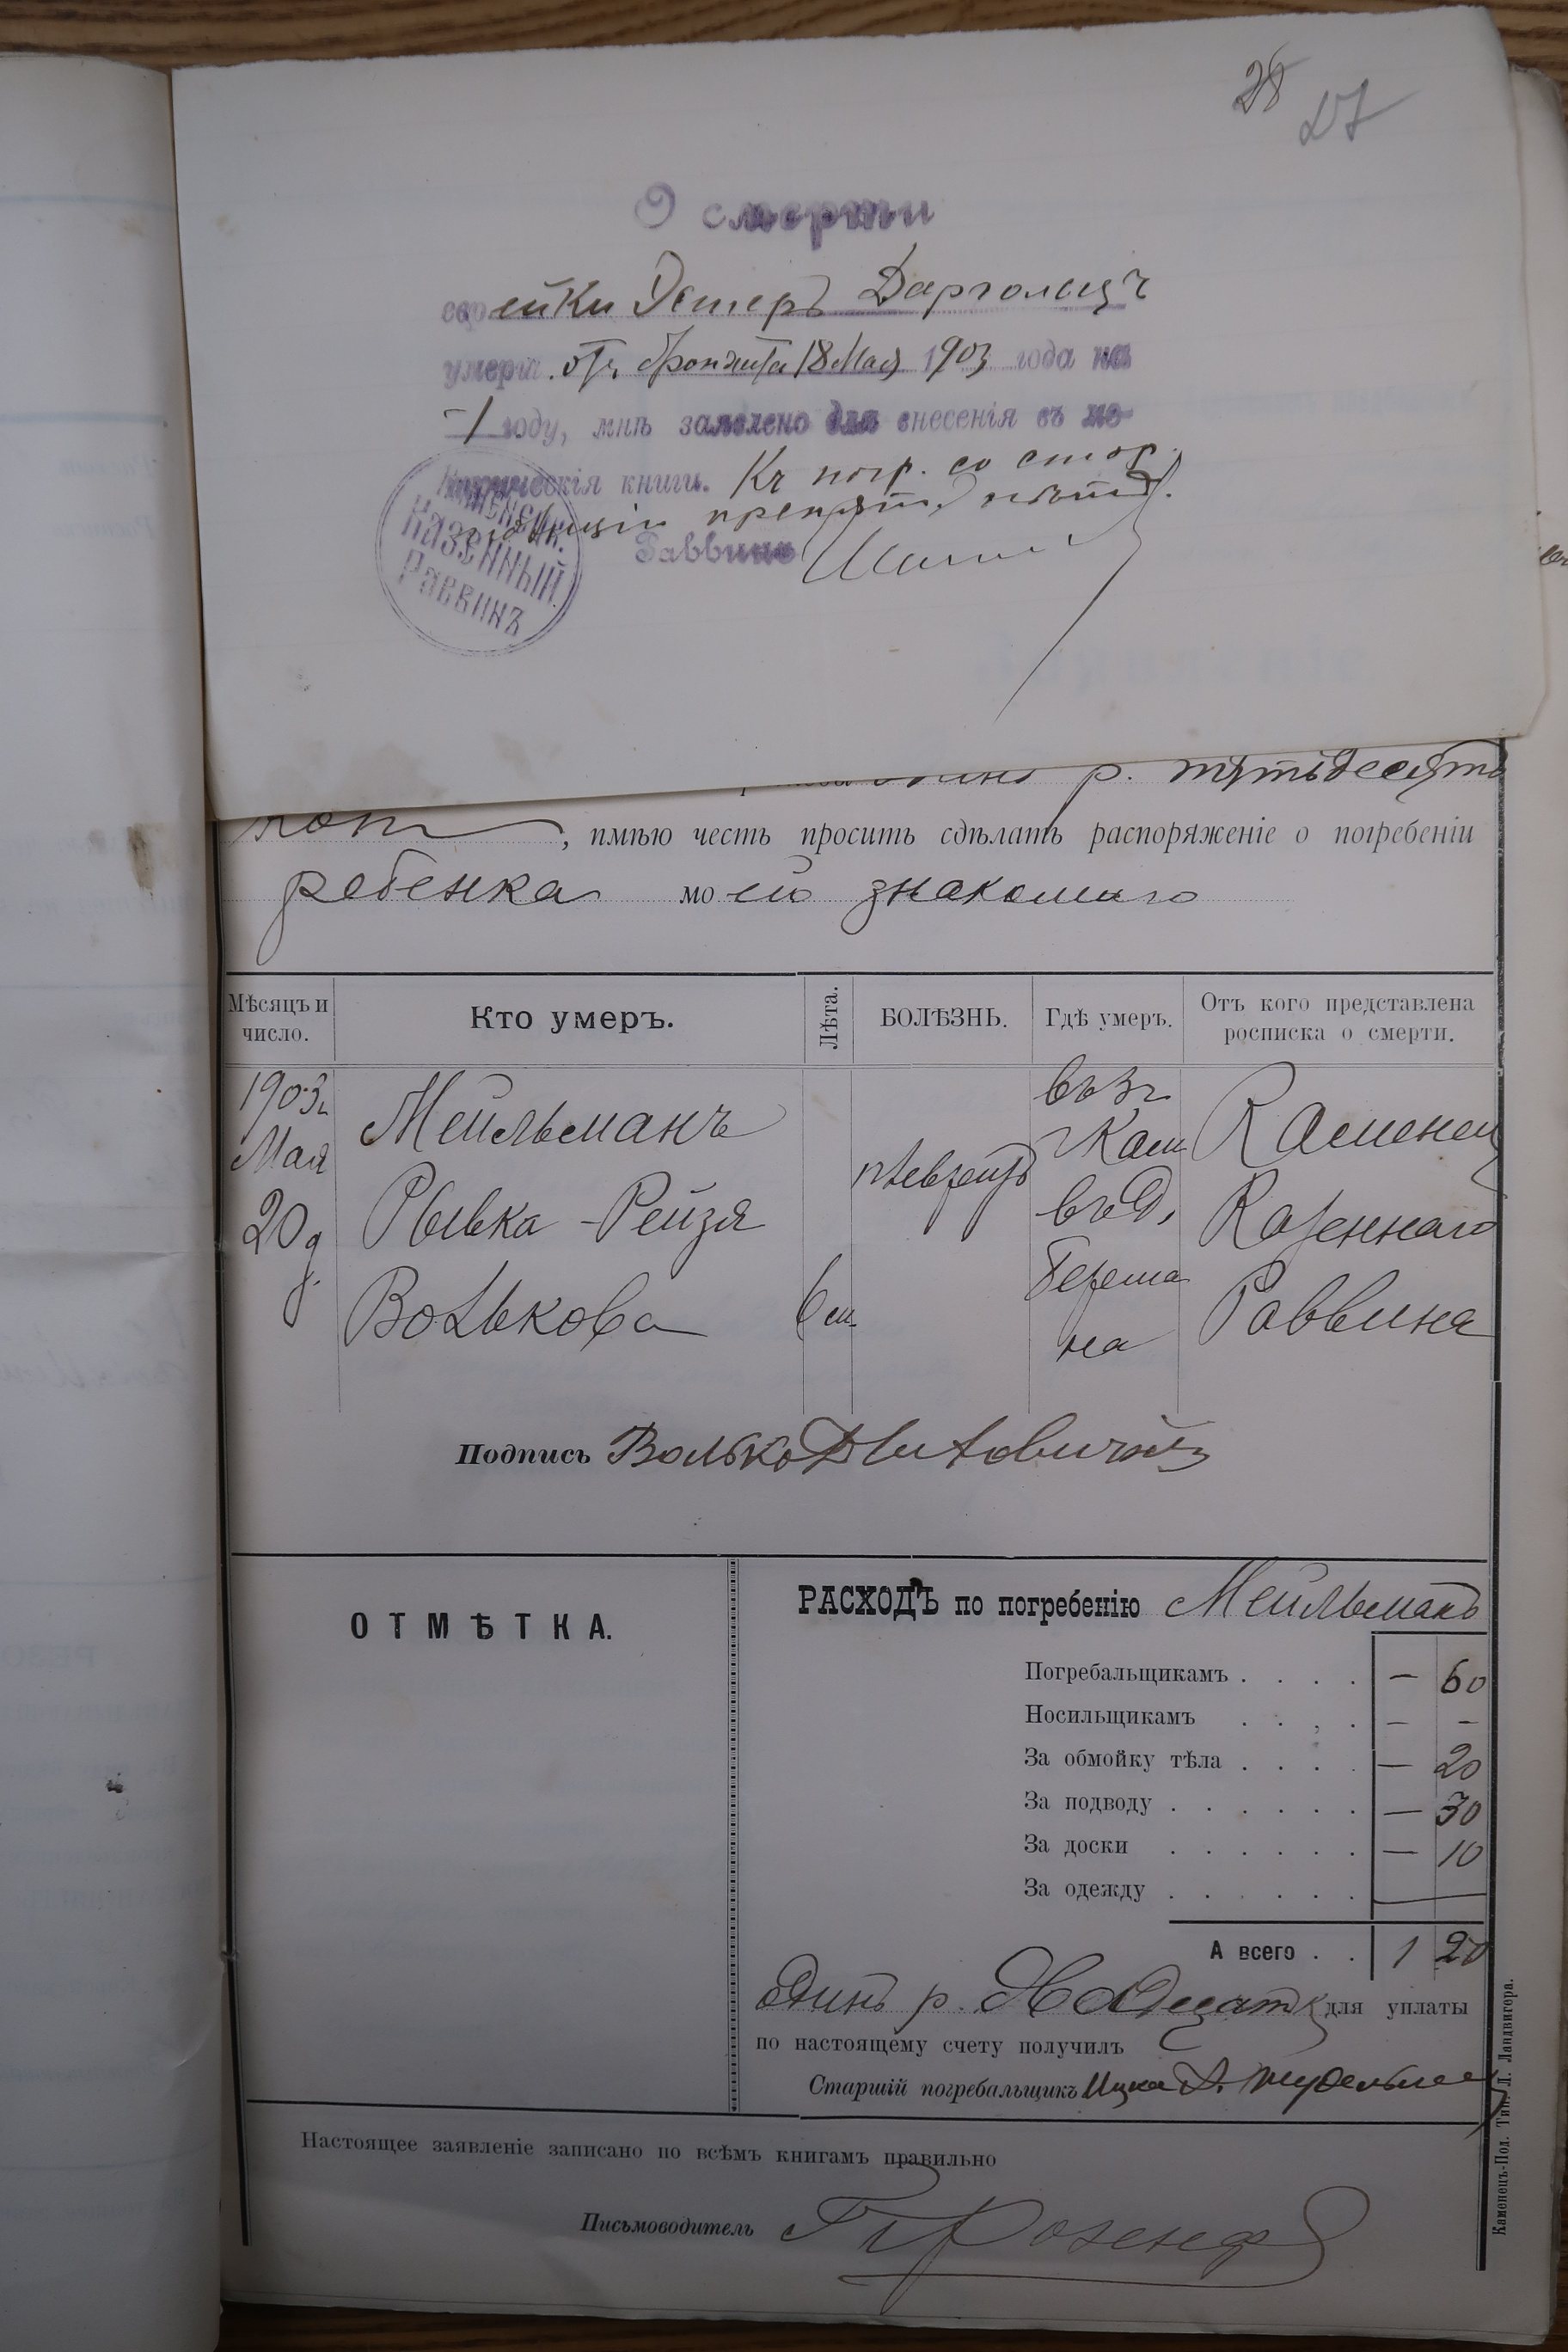 28 27
О смерти
еврейки Эстеръ Даргольцъ
умерш. отъ бронхита 18 Мая 1903 года на
-1 году, мнѣ заявлено для внесенія въ ме-
трическія книги. Къ погр. со стор.
препят. нѣтъ.
Раввинъ
КАМЕНЕЦК.
КАЗЕННЫЙ
РАВВИНЪ
р. пятьдесятъ
коп , имѣю честь просить сдѣлать распоряженіе о погребеніи
ребенка моего знакомаго
Мѣсяцъ и число. Кто умеръ. Лѣта. БОЛѢЗНЬ. Гдѣ умеръ. Отъ кого представлена росписка о смерти.
1903 г. Мейльманъ въ г. Каменец
Мая Рывка-Рейзя плевритъ Кам Казеннаго
20 д. Волькова 6 м. въ д. Раввина
Герша
на
Подпись Волько
ОТМѢТКА.
РАСХОДЪ по погребенію Мейльманъ
Погребальщикамъ . . . . — 60
Носильщикамъ . . . . — —
За обмойку тѣла . . . . — 20
За подводу . . . . . . — 30
За доски . . . . . . — 10
За одежду . . . . . . —
А всего . . 1 20
Одинъ р. двадцать к для уплаты
по настоящему счету получилъ
Старшій погребальщикъ Ицка
Настоящее заявленіе записано по всѣмъ книгамъ правильно
Письмоводитель
Каменецъ-Под. Тип. Л. Ландвигера.